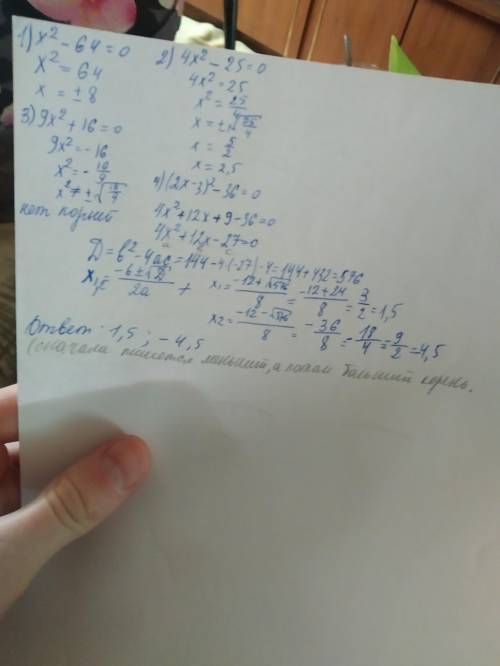 1) x² - 64 = 0
x² = 64
x = ± 8
2) 4x² - 25 = 0
4x² = 25
x² = 25/4
x = ±√25/4
x = 5/2
x = 2,5
3) 9x² + 16 = 0
9x² = -16
x² = - 16/9
x² ≠ ±√16/9
нет корней
4) (2x-3)² - 36 = 0
4x² + 12x + 9 - 36 = 0
4x² + 12x - 27 = 0
a в c
D = b² - 4ac = 144 - 4·(-27)·4 = 144 + 432 = 576
x₁,₂ = -b ± √D / 2a
x₁ = -12 + √576 / 8 = -12 + 24 / 8 = 3/2 = 1,5
x₂ = -12 - √576 / 8 = -36/8 = -18/4 = 9/2 = -4,5
Ответ: 1,5 ; -4,5
(сначала пишется меньший, а потом больший корень.